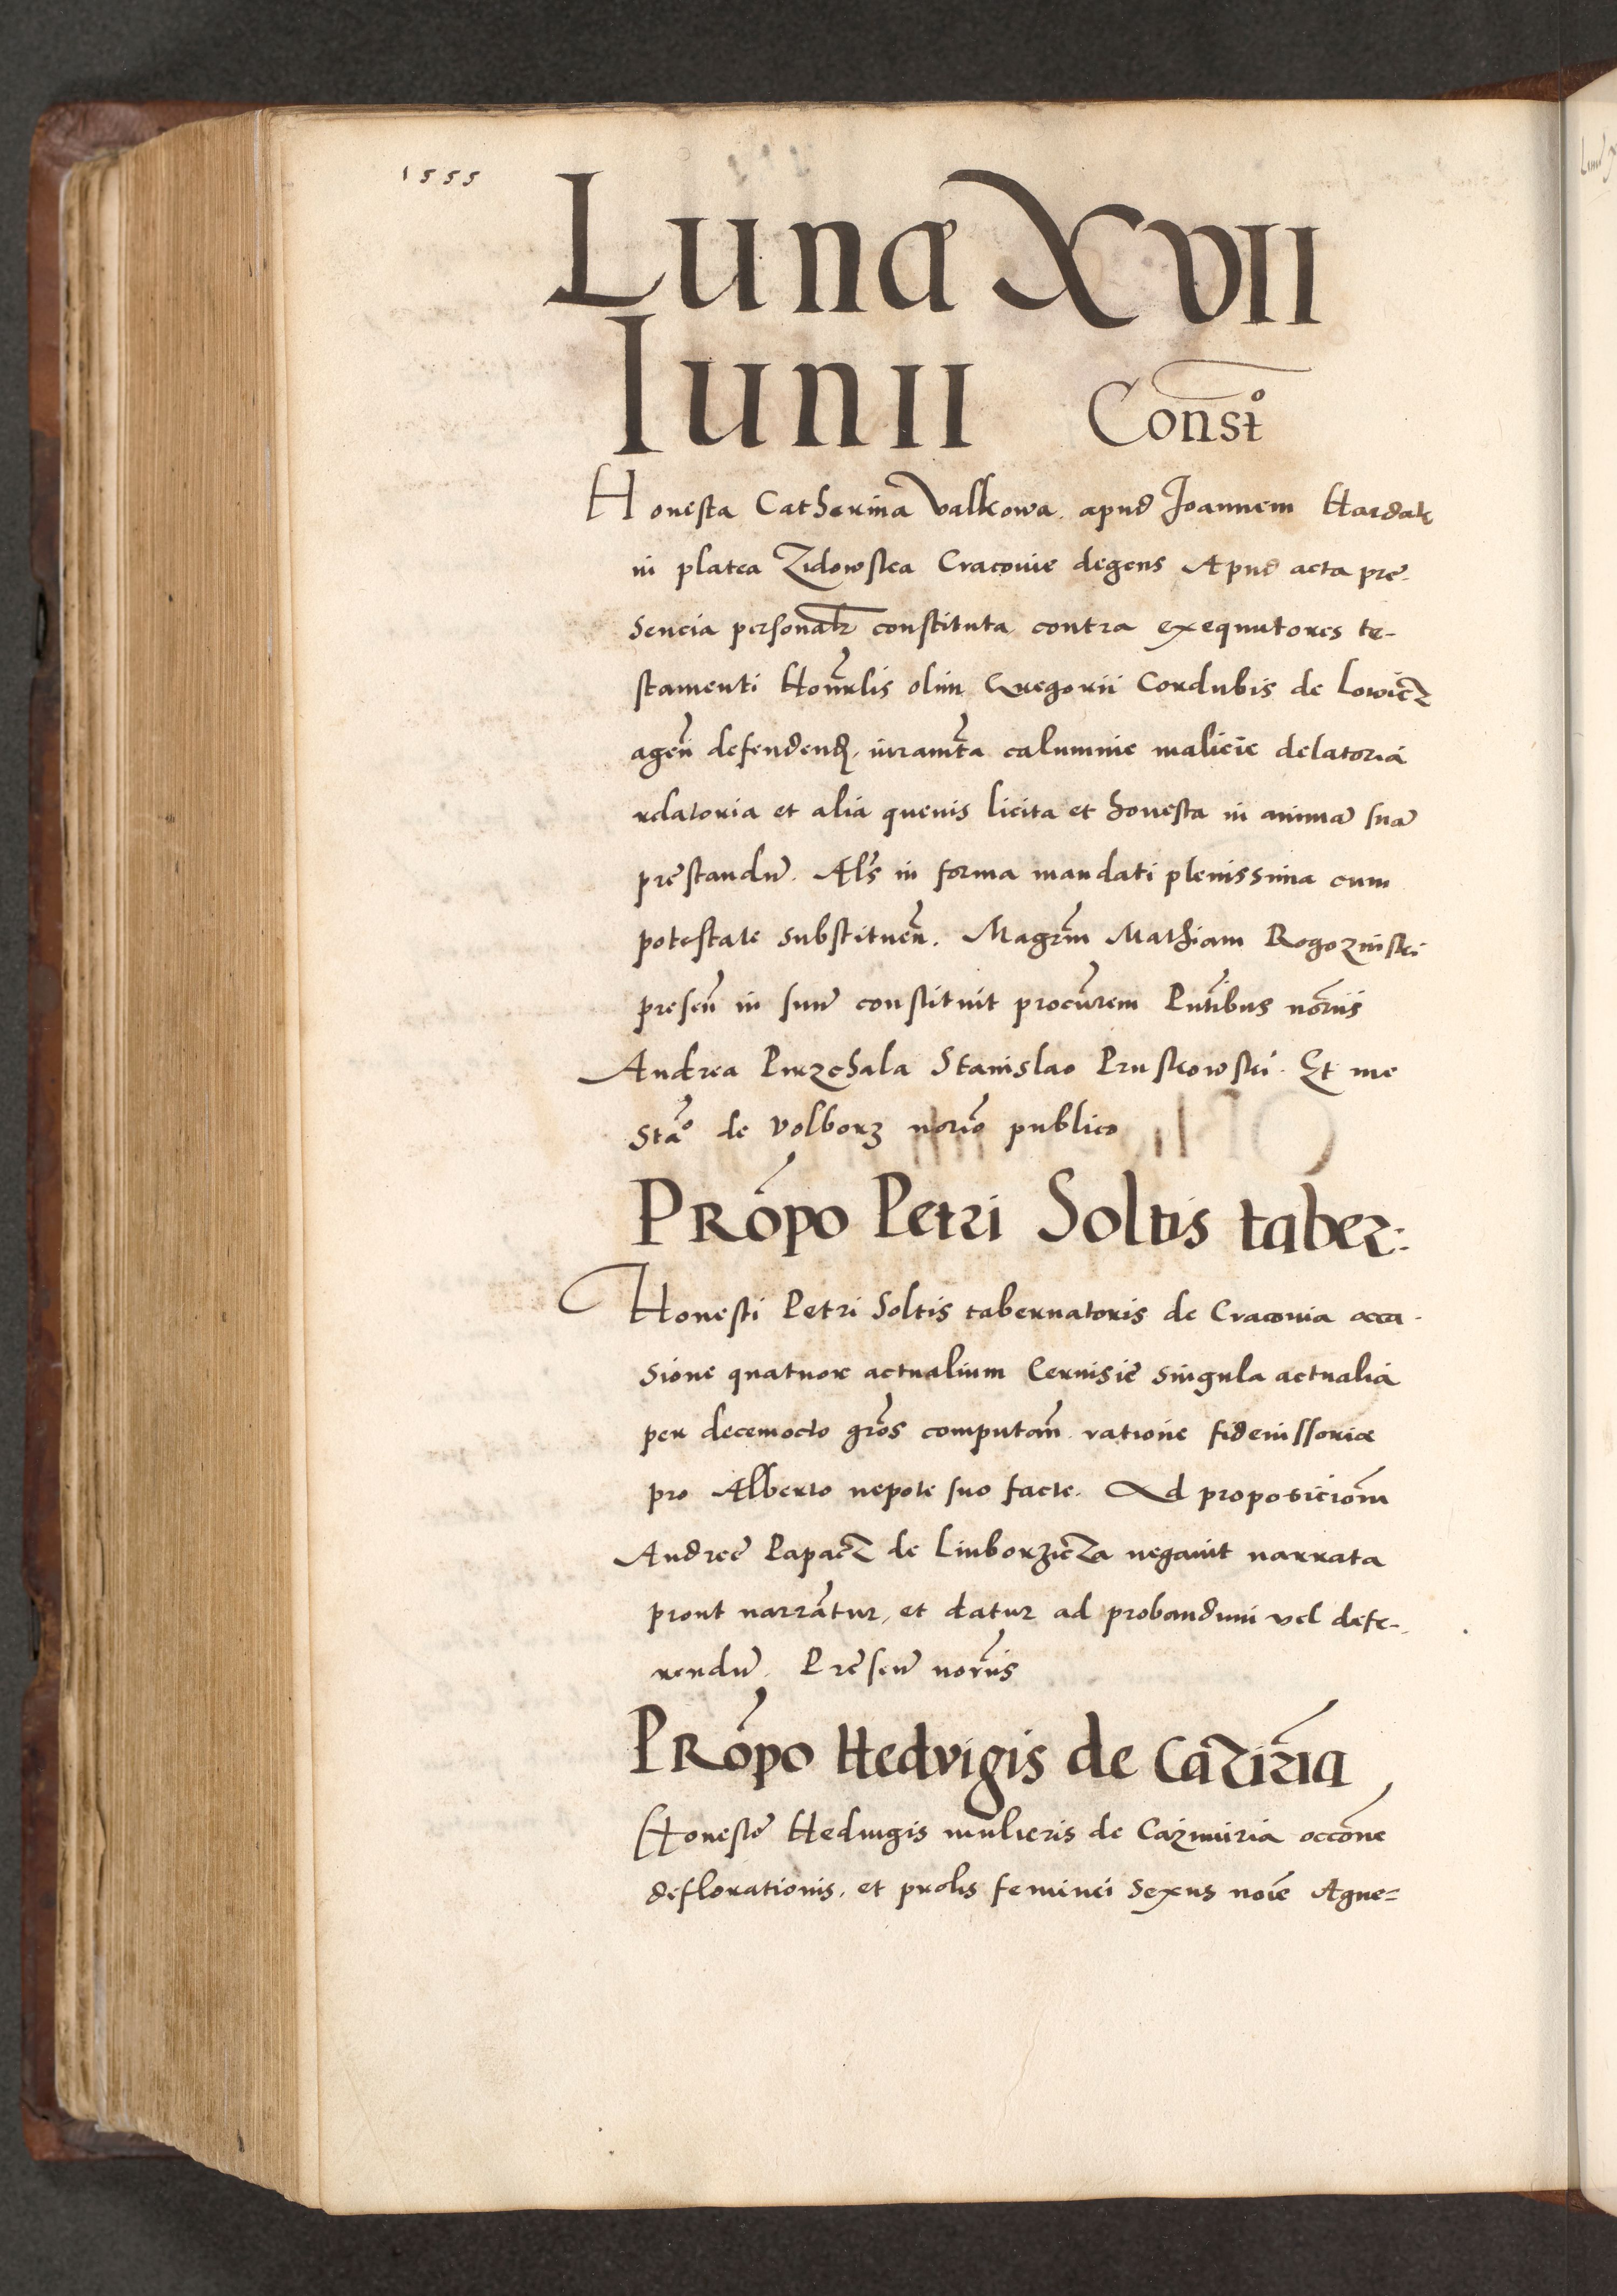 1555
Luna XVII
Iunii Constõ
Honesta Catherina Valkowa apud Joannem Hardak
in platea Zidowska Cracovie degens Apud acta pre-
sencia personalr constituta contra exequutores te-
stamenti Honrlis olim Gregorii Cordubis de Lowicz
agen defendend iuramta calumnie malicie delatoria
relatoria et alia quevis licita et honesta in animã suã
prestandũ. Als in forma mandati plenissima cum
potestate substituen. Magrm Mathiam Rogozniski
presen in suũ constituit procurem Pntibus noriis
Andrea Przechala Stanislao Pruskowski. Et me
Stão de Volborz norio publico
Propo Petri Soltis taber:
Honesti Petri Soltis tabernatoris de Cracovia occa-
sione quatuor actualium Cervisie singula actualia
per decemocto gros computan ratione fideiussorie
pro Alberto nepote suo facte. Ad proposicionm
Andree Papacz de Linborzicza negavit narrata
prout narrantur, et datur ad probandum vel defe-
rendũ. Presen noriis
Propo Hedvigis de Caziria
Honeste Hedvigis mulieris de Cazimiria occone
deflorationis, et prolis feminei sexus noie Agne=